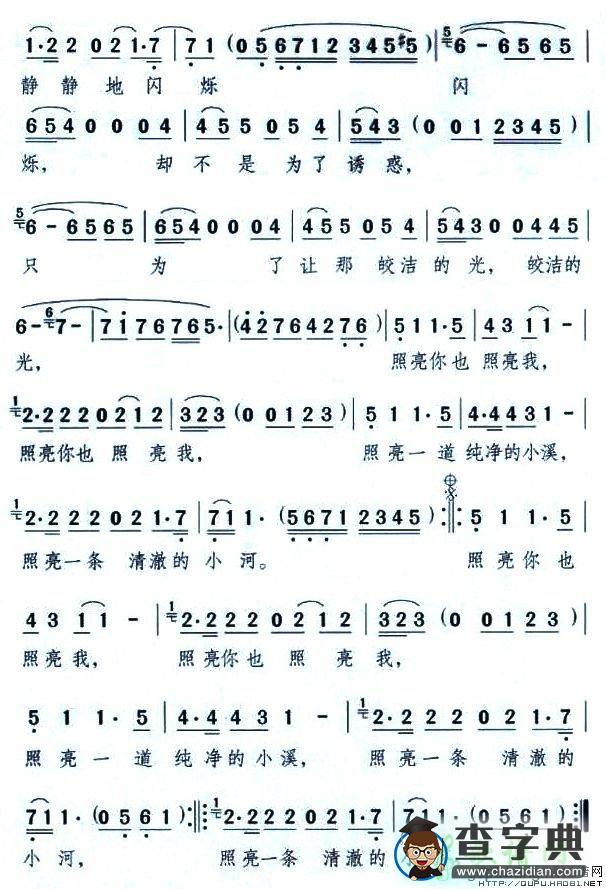 1·2 2 0 2 1·7 | 7 1 ( 0 5 6 7 1 2 3 4 5 #5 ) | 5 6 - 6 5 6 5
静静地闪烁 闪
6 5 4 0 0 0 4 | 4 5 5 0 5 4 | 5 4 3 ( 0 0 1 2 3 4 5 )
烁， 却不是为了诱惑，
5 6 - 6 5 6 5 | 6 5 4 0 0 0 4 | 4 5 5 0 5 4 | 5 4 3 0 0 4 4 5
只 为 了让那皎洁的光，皎洁的
6 - 6 7 - | 7 1 7 6 7 6 5· | ( 4 2 7 6 4 2 7 6 ) | 5 1 1·5 | 4 3 1 1 - |
光， 照亮你也 照亮我，
1 2·2 2 2 0 2 1 2 | 3 2 3 ( 0 0 1 2 3 ) | 5 1 1·5 | 4·4 4 3 1 - |
照亮你也 照 亮我， 照亮一道纯净的小溪，
1 2·2 2 2 0 2 1·7 | 7 1 1· ( 5 6 7 1 2 3 4 5 ) :||: 5 1 1·5 |
照亮一条 清澈的小河。 照亮你也
4 3 1 1 - | 1 2·2 2 2 0 2 1 2 | 3 2 3 ( 0 0 1 2 3 ) |
照亮我， 照亮你也 照 亮我，
5 1 1·5 | 4·4 4 3 1 - | 1 2·2 2 2 0 2 1·7 |
照亮一道纯净的小溪， 照亮一条 清澈的
7 1 1· ( 0 5 6 1 ) :||: 1 2·2 2 2 0 2 1·7 | 7 1 1· ( 0 5 6 1 ) :||
小河， 照亮一条 清澈的
查字典
www.chazidian.com
HTTP://QUPU.HAO81.NET